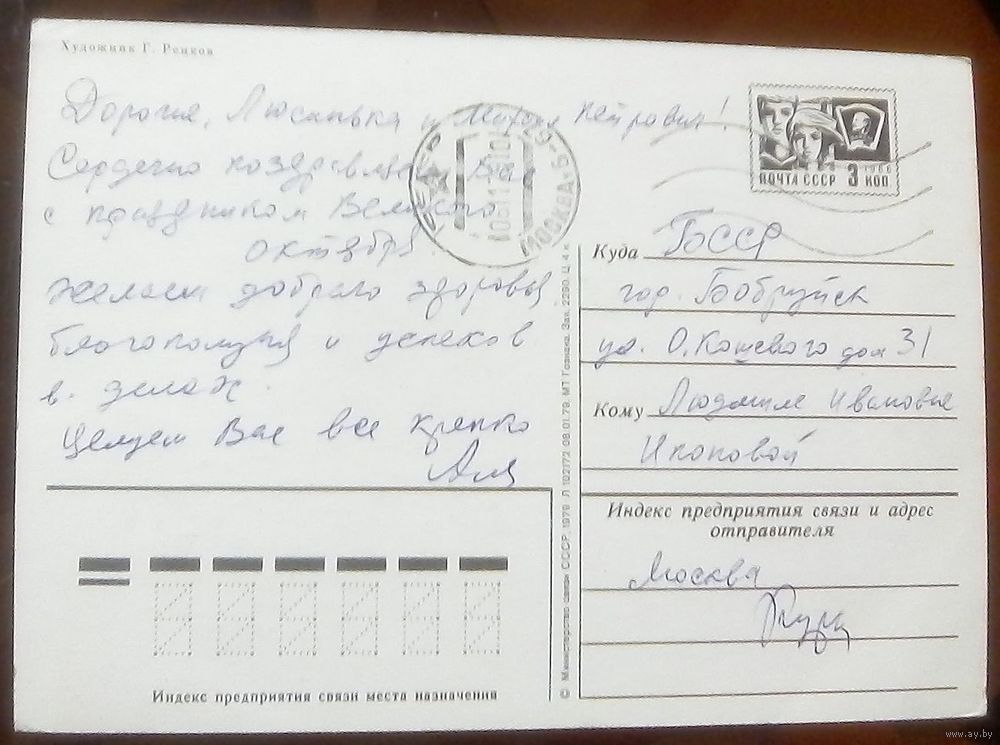 Художник Г. Ренков
Дорогие, Люсинька и Михаил Петрович!
Сердечно поздравляем Вас
с праздником Великого
октября!
Желаем доброго здоровья
благополучия и успехов
в делах.
Целуем Вас все крепко
Аля
МОСКВА
ПОЧТА СССР 3 КОП
1966
Куда БССР
гор. Бобруйск
ул. О. Кошевого дом 31
Кому Людмиле Ивановне
Икоповой
Индекс предприятия связи и адрес
отправителя
Москва
Индекс предприятия связи места назначения
© Министерство связи СССР. 1979. Л 102172. 08.01.79. МТ Гознака. Зак. 2290. Ц. 4 к.
www.ay.by